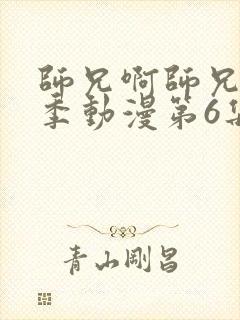 師兄啊師兄
季動漫第6集
青山剛昌